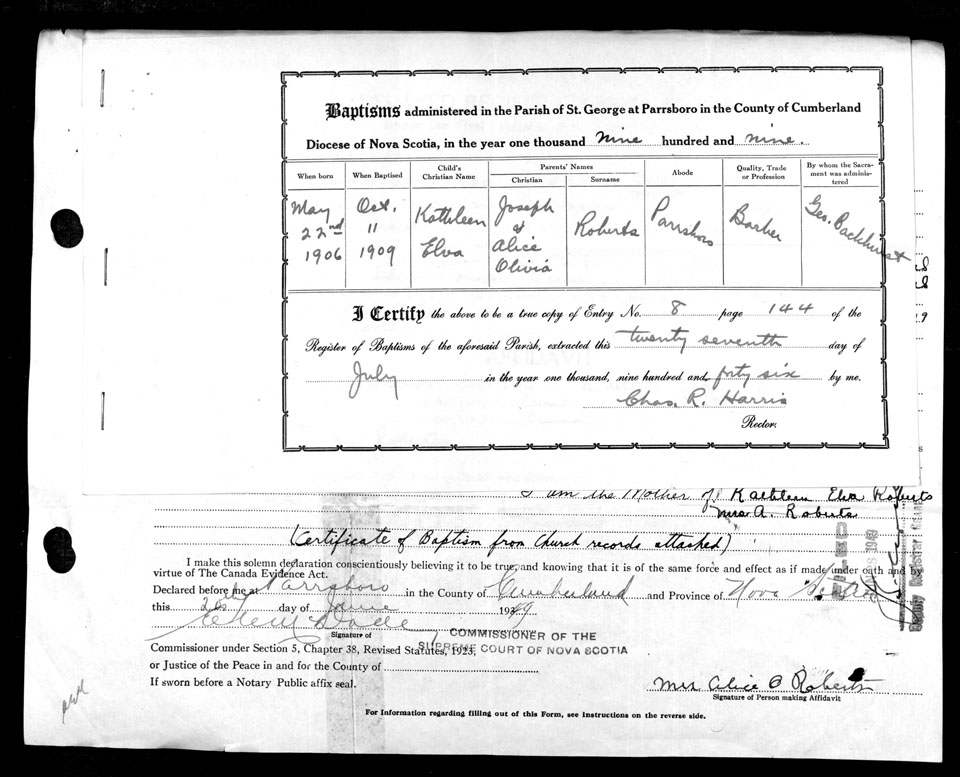 Baptisms administered in the Parish of St. George at Parrsboro in the County of Cumberland
Diocese of Nova Scotia, in the year one thousand Nine hundred and nine.
When born
When Baptised
Child's Christian Name
Parents' Names
Christian
Surname
Abode
Quality, Trade or Profession
By whom the Sacrament was administered
May 22nd 1906
Oct. 11 1909
Kathleen Elva
Joseph & Alice Olivia
Roberts
Parrsboro
Barber
Geo. Backhurst
I Certify the above to be a true copy of Entry No. 8 page 144 of the
Register of Baptisms of the aforesaid Parish, extracted this twenty seventh day of
July in the year one thousand, nine hundred and forty six by me.
Chas. R. Harris
Rector.
I am the Mother of Kathleen Elva Roberts
Mrs A. Roberts
(Certificate of Baptism from Church records attached)
I make this solemn declaration conscientiously believing it to be true, and knowing that it is of the same force and effect as if made under oath and by
virtue of The Canada Evidence Act.
Declared before me at Parrsboro in the County of Cumberland and Province of Nova Scotia
this day of June 1949
Signature of
COMMISSIONER OF THE
SUPREME COURT OF NOVA SCOTIA
Commissioner under Section 5, Chapter 38, Revised Statutes, 1923,
or Justice of the Peace in and for the County of
If sworn before a Notary Public affix seal.
Mrs Alice O Roberts
Signature of Person making Affidavit
For Information regarding filling out of this Form, see Instructions on the reverse side.